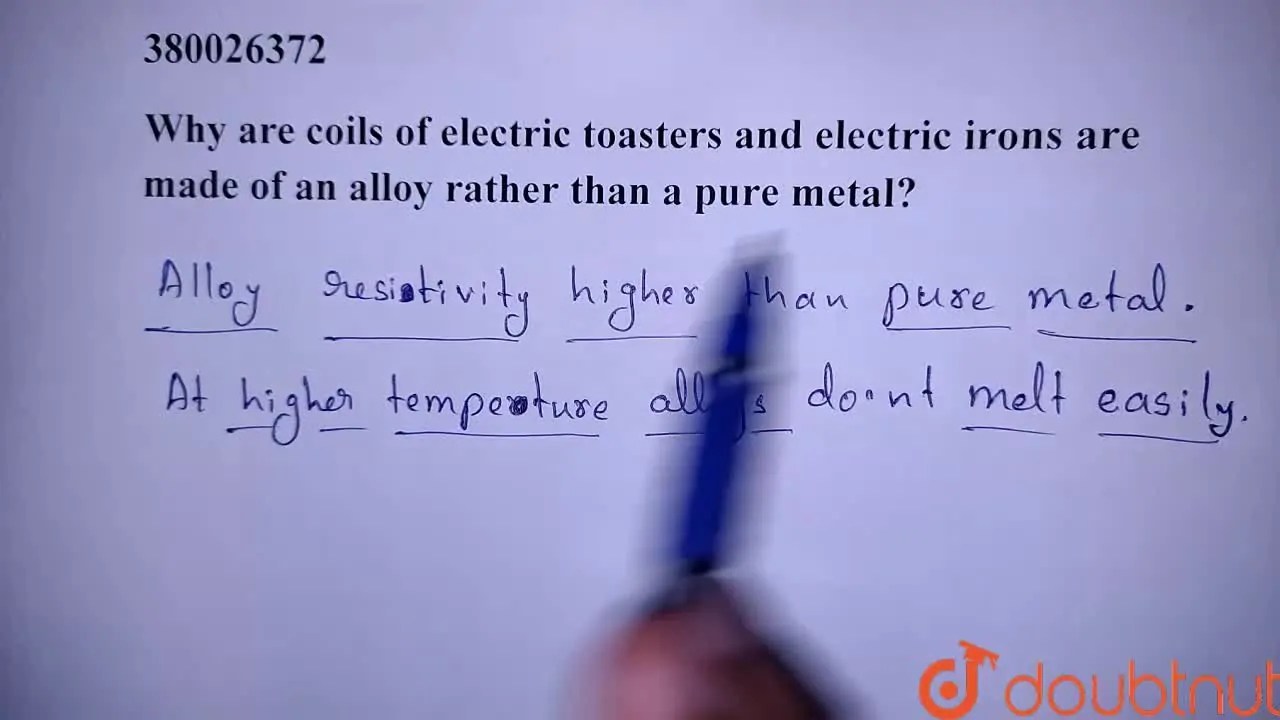 380026372
Why are coils of electric toasters and electric irons are
made of an alloy rather than a pure metal?
Alloy resistivity higher than pure metal.
At higher temperture alloys do.nt melt easily.
doubtnut